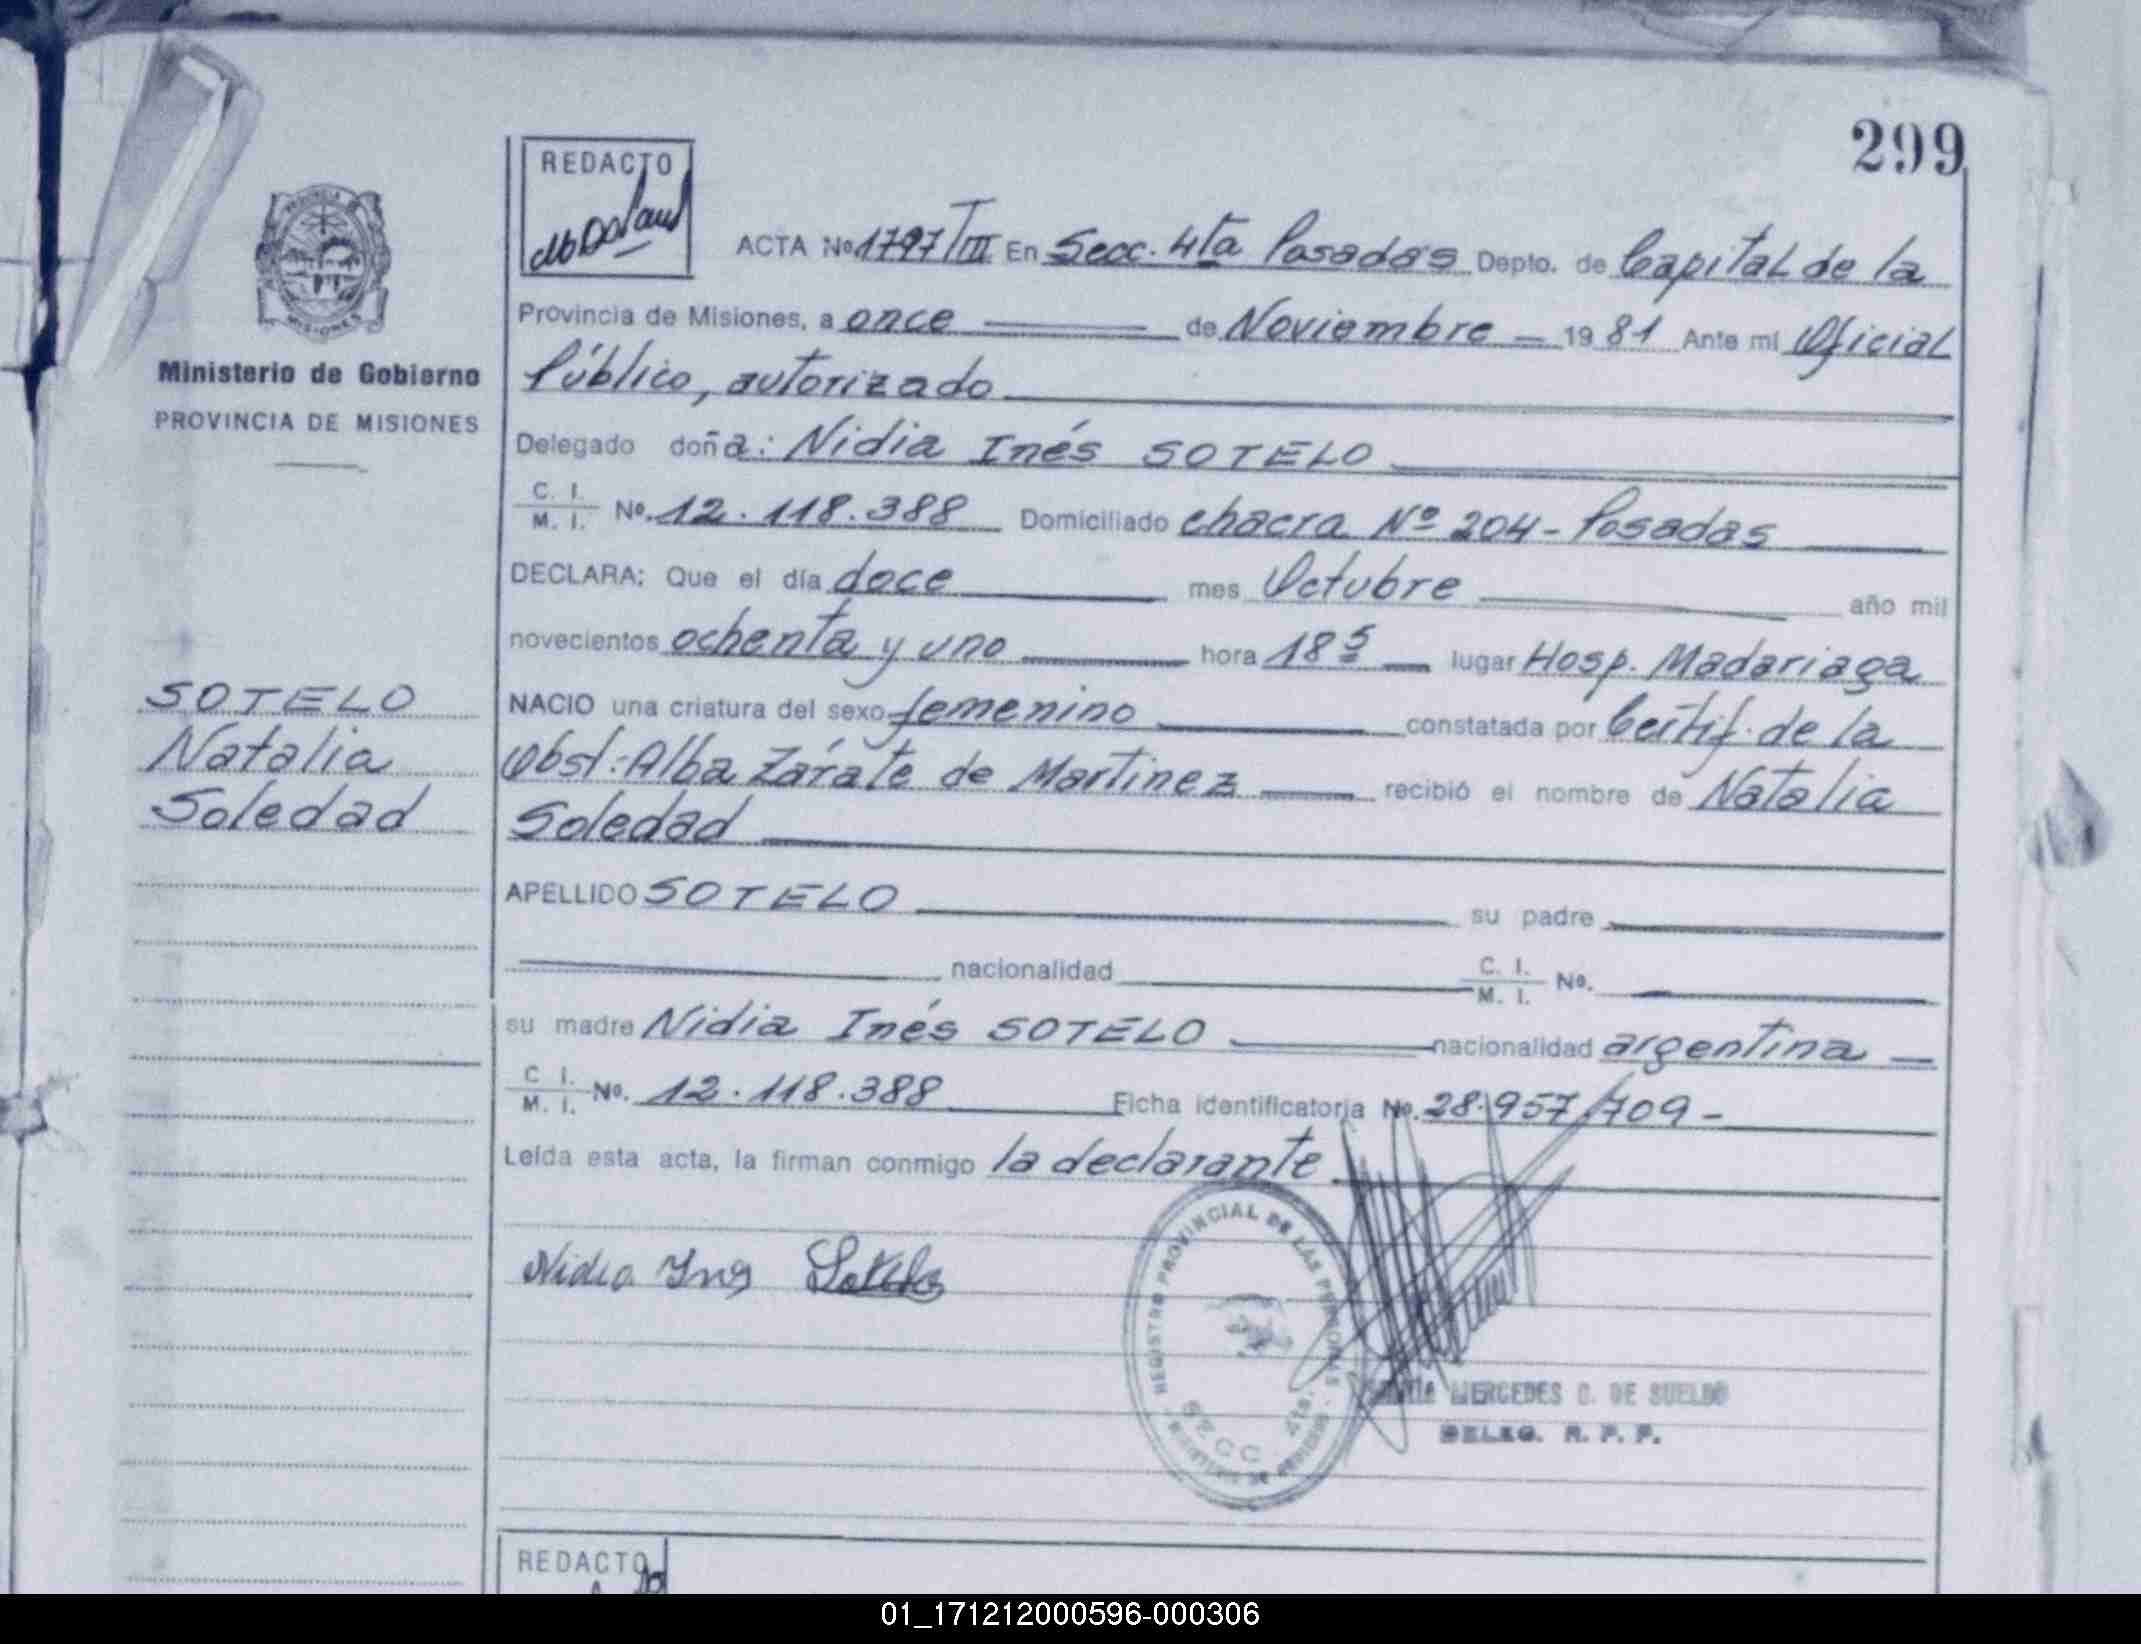 299
REDACTO
ACTA No. 1797/TIII En Secc. 4ta Posadas Depto. de Capital de la
Provincia de Misiones, a once de Noviembre 19 81 Ante mi Oficial
Público, autorizado
Delegado doña: Nidia Inés SOTELO
C. I.
M. I. No. 12.118.388 Domiciliado chacra Nº 204 - Posadas
DECLARA: Que el día doce mes Octubre año mil
novecientos ochenta y uno hora 18 5 lugar Hosp. Madariaga
NACIO una criatura del sexo femenino constatada por Certif. de la
Obst.: Alba Zárate de Martinez recibió el nombre de Natalia
Soledad
APELLIDO SOTELO su padre
nacionalidad C. I.
M. I. No.
su madre Nidia Inés SOTELO nacionalidad argentina
C. I.
M. I. No. 12.118.388 Ficha identificatoria No. 28.957.709 -
Leída esta acta, la firman conmigo la declarante
Nidia Ines Sotelo
REGISTRO PROVINCIAL DE LAS PERSONAS
SECC 4ta.
MERCEDES C. DE SUELDO
DELEG. R. P. P.
REDACTO
PROVINCIA
MISIONES
Ministerio de Gobierno
PROVINCIA DE MISIONES
SOTELO
Natalia
Soledad
01_171212000596-000306